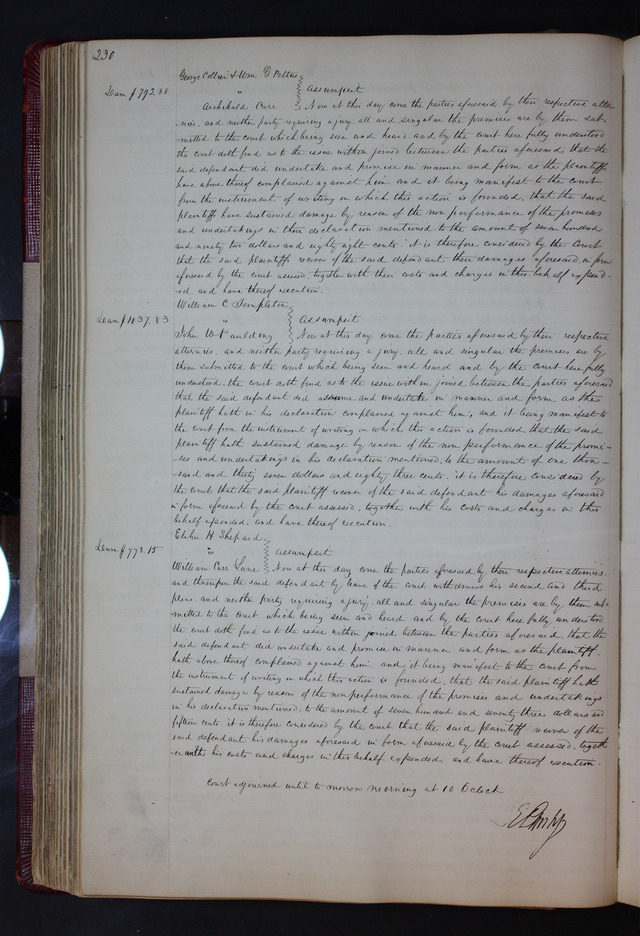 230
George Collier & Wm B Pettus
" Assumpsit
Dam $792.88
Archibald Carr Now at this day, come the parties aforesaid by their respective attor-
nies, and neither party requiring a jury, all and singular the premises are by them sub-
mitted to the court which being seen and heard, and by the court here fully understood
the court doth find as to the issue within joined between the parties aforesaid, that the
said defendant did undertake and promise in manner and form as the plaintiffs
have above thereof complained against him and it being manifest to the court
from the instrument of writing on which this action is founded, that the said
plaintiffs have sustained damage by reason of the non performance of the promises
and undertakings in their declaration mentioned to the amount of seven hundred
and ninety two dollars and eighty eight cents it is therefore considered by the Court
that the said plaintiffs recover of the said defendant their damages aforesaid in form
aforesaid by the court assessed, together with their costs and charges in this behalf expend-
ed and have thereof execution.
William C Templeton
" Assumpsit
Dam $1037.83
John W Paulding Now at this day come the parties aforesaid by their respective
attornies, and neither party requiring a jury all and singular the premises are by
them submitted to the court which being seen and heard and by the court here fully
understood, the court doth find as to the issue within joined between the parties aforesaid
that the said defendant did assume and undertake in manner and form as the
plaintiff hath in his declaration complained against him, and it being manifest to
the court from the instrument of writing on which this action is founded, that the said
plaintiff hath sustained damage by reason of the non performance of the promi-
ses and undertakings in his declaration mentioned, to the amount of one thou-
sand and thirty seven dollars and eighty three cents, it is therefore considered by
the court that the said plaintiff recover of the said defendant his damages aforesaid
in form aforesaid by the court assessed, together with his costs and charges in this
behalf expended, and have thereof execution.
Elihu H Shepard
vs Assumpsit
Dam $773.15
William Carr Lane Now at this day come the parties aforesaid by their respective attornies
and thereupon the said defendant by leave of the court withdraws his second and third
pleas and neither party requiring a jury, all and singular the premises are by them sub-
mitted to the court, which being seen and heard, and by the Court here fully understood
the court doth find as to the issue within joined between the parties aforesaid, that the
said defendant did undertake and promise in manner and form as the plaintiff
hath above thereof complained against him, and it being manifest to the court from
the instrument of writing on which this action is founded, that the said plaintiff hath
sustained damage by reason of the nonperformance of the promises and undertakings
in his declaration mentioned, to the amount of seven hundred and seventy three dollars and
fifteen cents it is therefore considered by the court that the said plaintiff recover of the
said defendant his damages aforesaid in form aforesaid by the court assessed, togeth
er with his costs and charges in this behalf expended and have thereof execution.
Court adjourned until to morrow morning at 10 Oclock